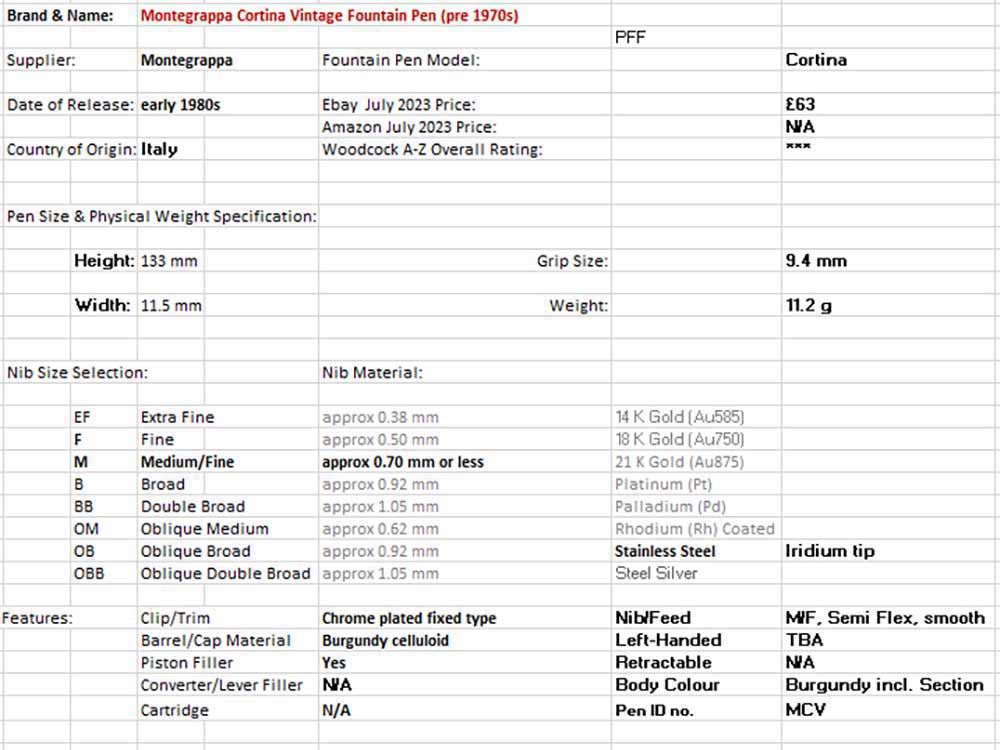 Brand & Name: Montegrappa Cortina Vintage Fountain Pen (pre 1970s)
PFF
Supplier: Montegrappa Fountain Pen Model: Cortina
Date of Release: early 1980s Ebay July 2023 Price: £63
Amazon July 2023 Price: N/A
Country of Origin: Italy Woodcock A-Z Overall Rating: ***
Pen Size & Physical Weight Specification:
Height: 133 mm Grip Size: 9.4 mm
Width: 11.5 mm Weight: 11.2 g
Nib Size Selection: Nib Material:
EF Extra Fine approx 0.38 mm 14 K Gold (Au585)
F Fine approx 0.50 mm 18 K Gold (Au750)
M Medium/Fine approx 0.70 mm or less 21 K Gold (Au875)
B Broad approx 0.92 mm Platinum (Pt)
BB Double Broad approx 1.05 mm Palladium (Pd)
OM Oblique Medium approx 0.62 mm Rhodium (Rh) Coated
OB Oblique Broad approx 0.92 mm Stainless Steel Iridium tip
OBB Oblique Double Broad approx 1.05 mm Steel Silver
Features: Clip/Trim Chrome plated fixed type Nib/Feed M/F, Semi Flex, smooth
Barrel/Cap Material Burgundy celluloid Left-Handed TBA
Piston Filler Yes Retractable N/A
Converter/Lever Filler N/A Body Colour Burgundy incl. Section
Cartridge N/A Pen ID no. MCV